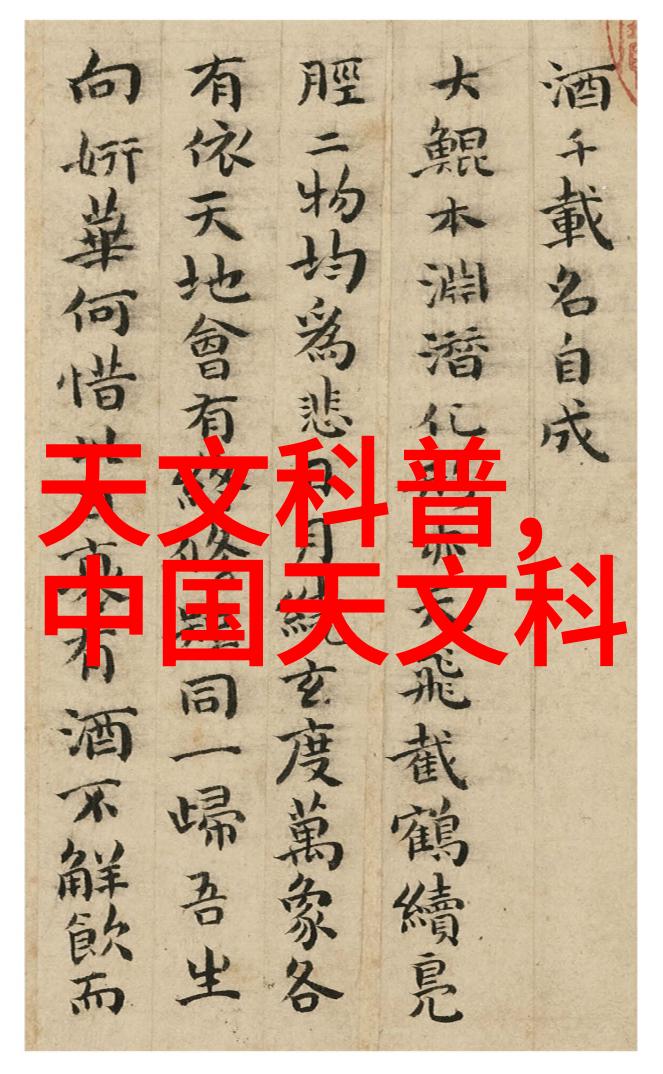 酒千載名自成
大鯤本淵潛化天飛截鶴續鳧
脛二物均爲悲日月玄度萬象各
有依天地會有終同一歸吾生
向妍華何惜有酒不解飲而
天文科普,
中国天文科